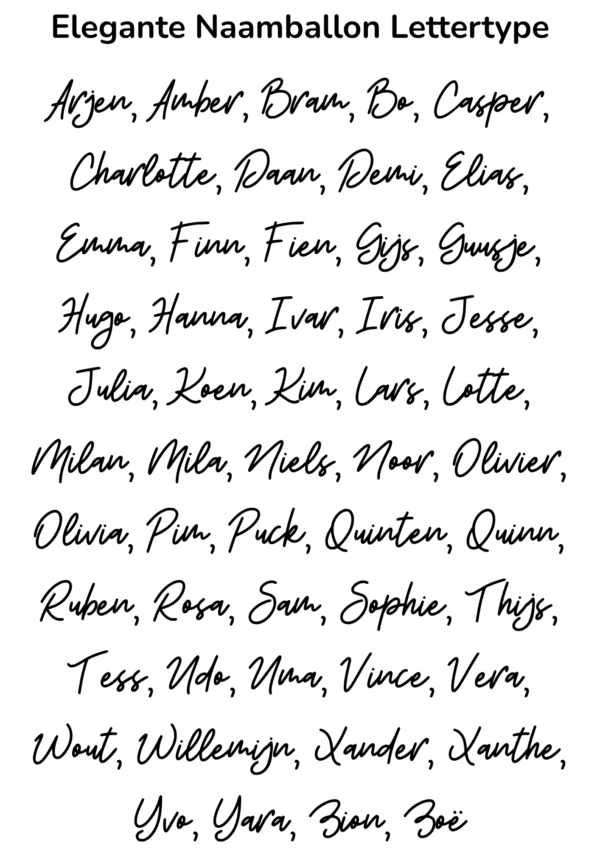 Elegante Naamballon Lettertype
Arjen, Amber, Bram, Bo, Casper,
Charlotte, Daan, Demi, Elias,
Emma, Finn, Fien, Gijs, Guusje,
Hugo, Hanna, Ivar, Iris, Jesse,
Julia, Koen, Kim, Lars, Lotte,
Milan, Mila, Niels, Noor, Olivier,
Olivia, Pim, Puck, Quinten, Quinn,
Ruben, Rosa, Sam, Sophie, Thijs,
Tess, Udo, Uma, Vince, Vera,
Wout, Willemijn, Xander, Xanthe,
Yvo, Yara, Zion, Zoë